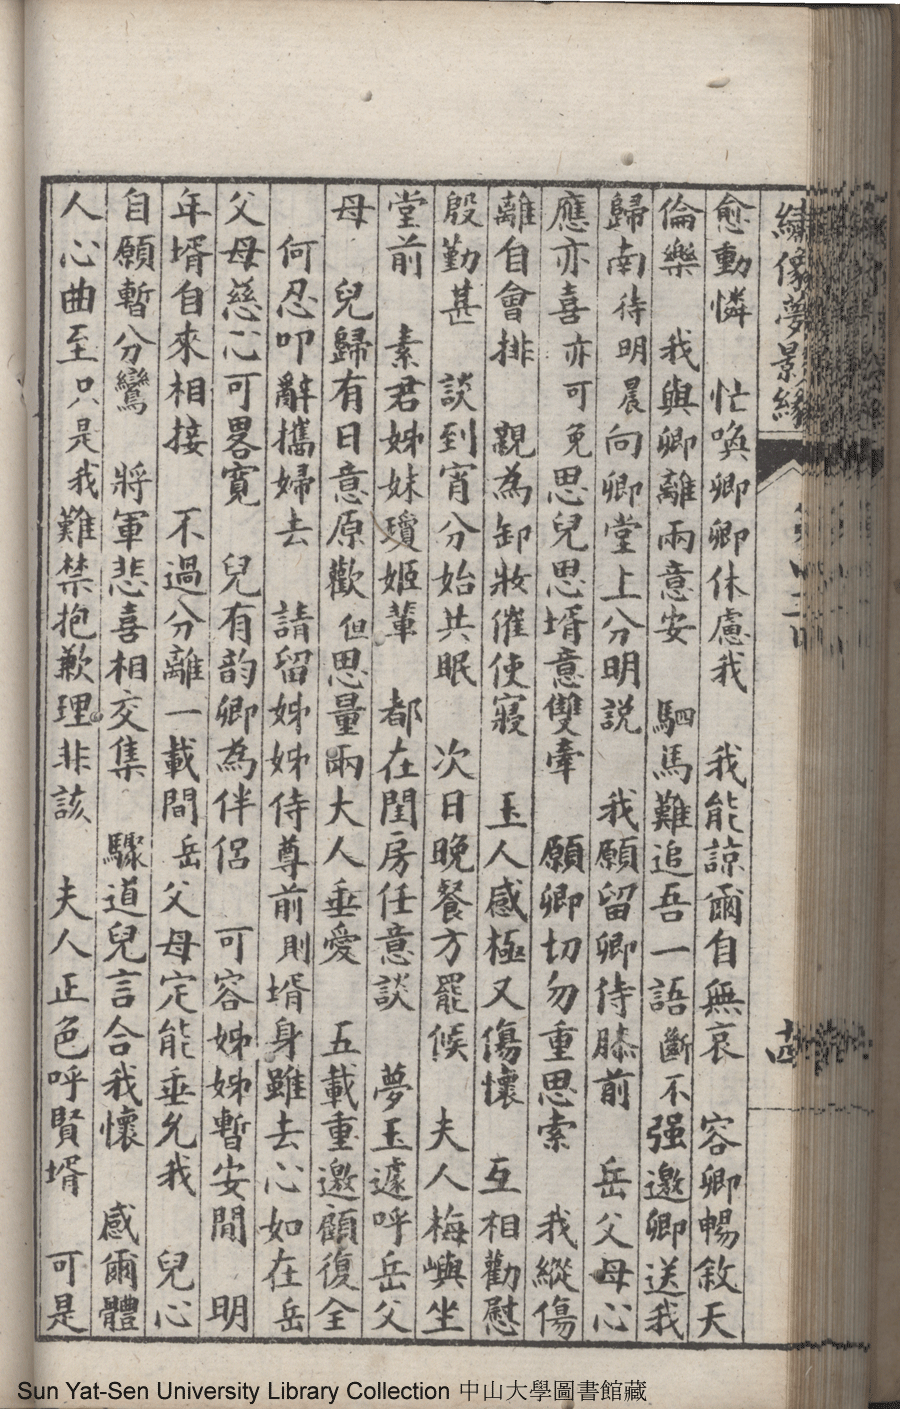 繡像夢景緣
愈動憐　忙喚卿卿休慮我　我能諒爾自無哀　容卿暢敘天
倫樂　我與卿離兩意安　駟馬難追吾一語斷不强邀卿送我
歸南待明晨向卿堂上分明説　我願留卿侍膝前　岳父母心
應亦喜亦可免思兒思壻意雙牽　願卿切勿重思索　我縱傷
離自會排　親為卸妝催使寢　玉人感極又傷懷　互相勸慰
殷勤甚　談到宵分始共眠　次日晚餐方罷候　夫人梅嶼坐
堂前　素君姊妹瓊姬輩　都在閨房任意談　夢玉遽呼岳父
母　兒歸有日意原歡但思量兩大人垂愛　五載重邀顧復全
何忍叩辭攜婦去　請留姊姊侍尊前則壻身雖去心如在岳
父母慈心可畧寬　兒有韵卿為伴侶　可容姊姊暫安閒　明
年壻自來相接　不過分離一載間岳父母定能垂允我　兒心
自願暫分鸞　將軍悲喜相交集　驟道兒言合我懷　感爾體
人心曲至只是我難禁抱歉理非該　夫人正色呼賢壻　可是
Sun Yat-Sen University Library Collection 中山大學圖書館藏